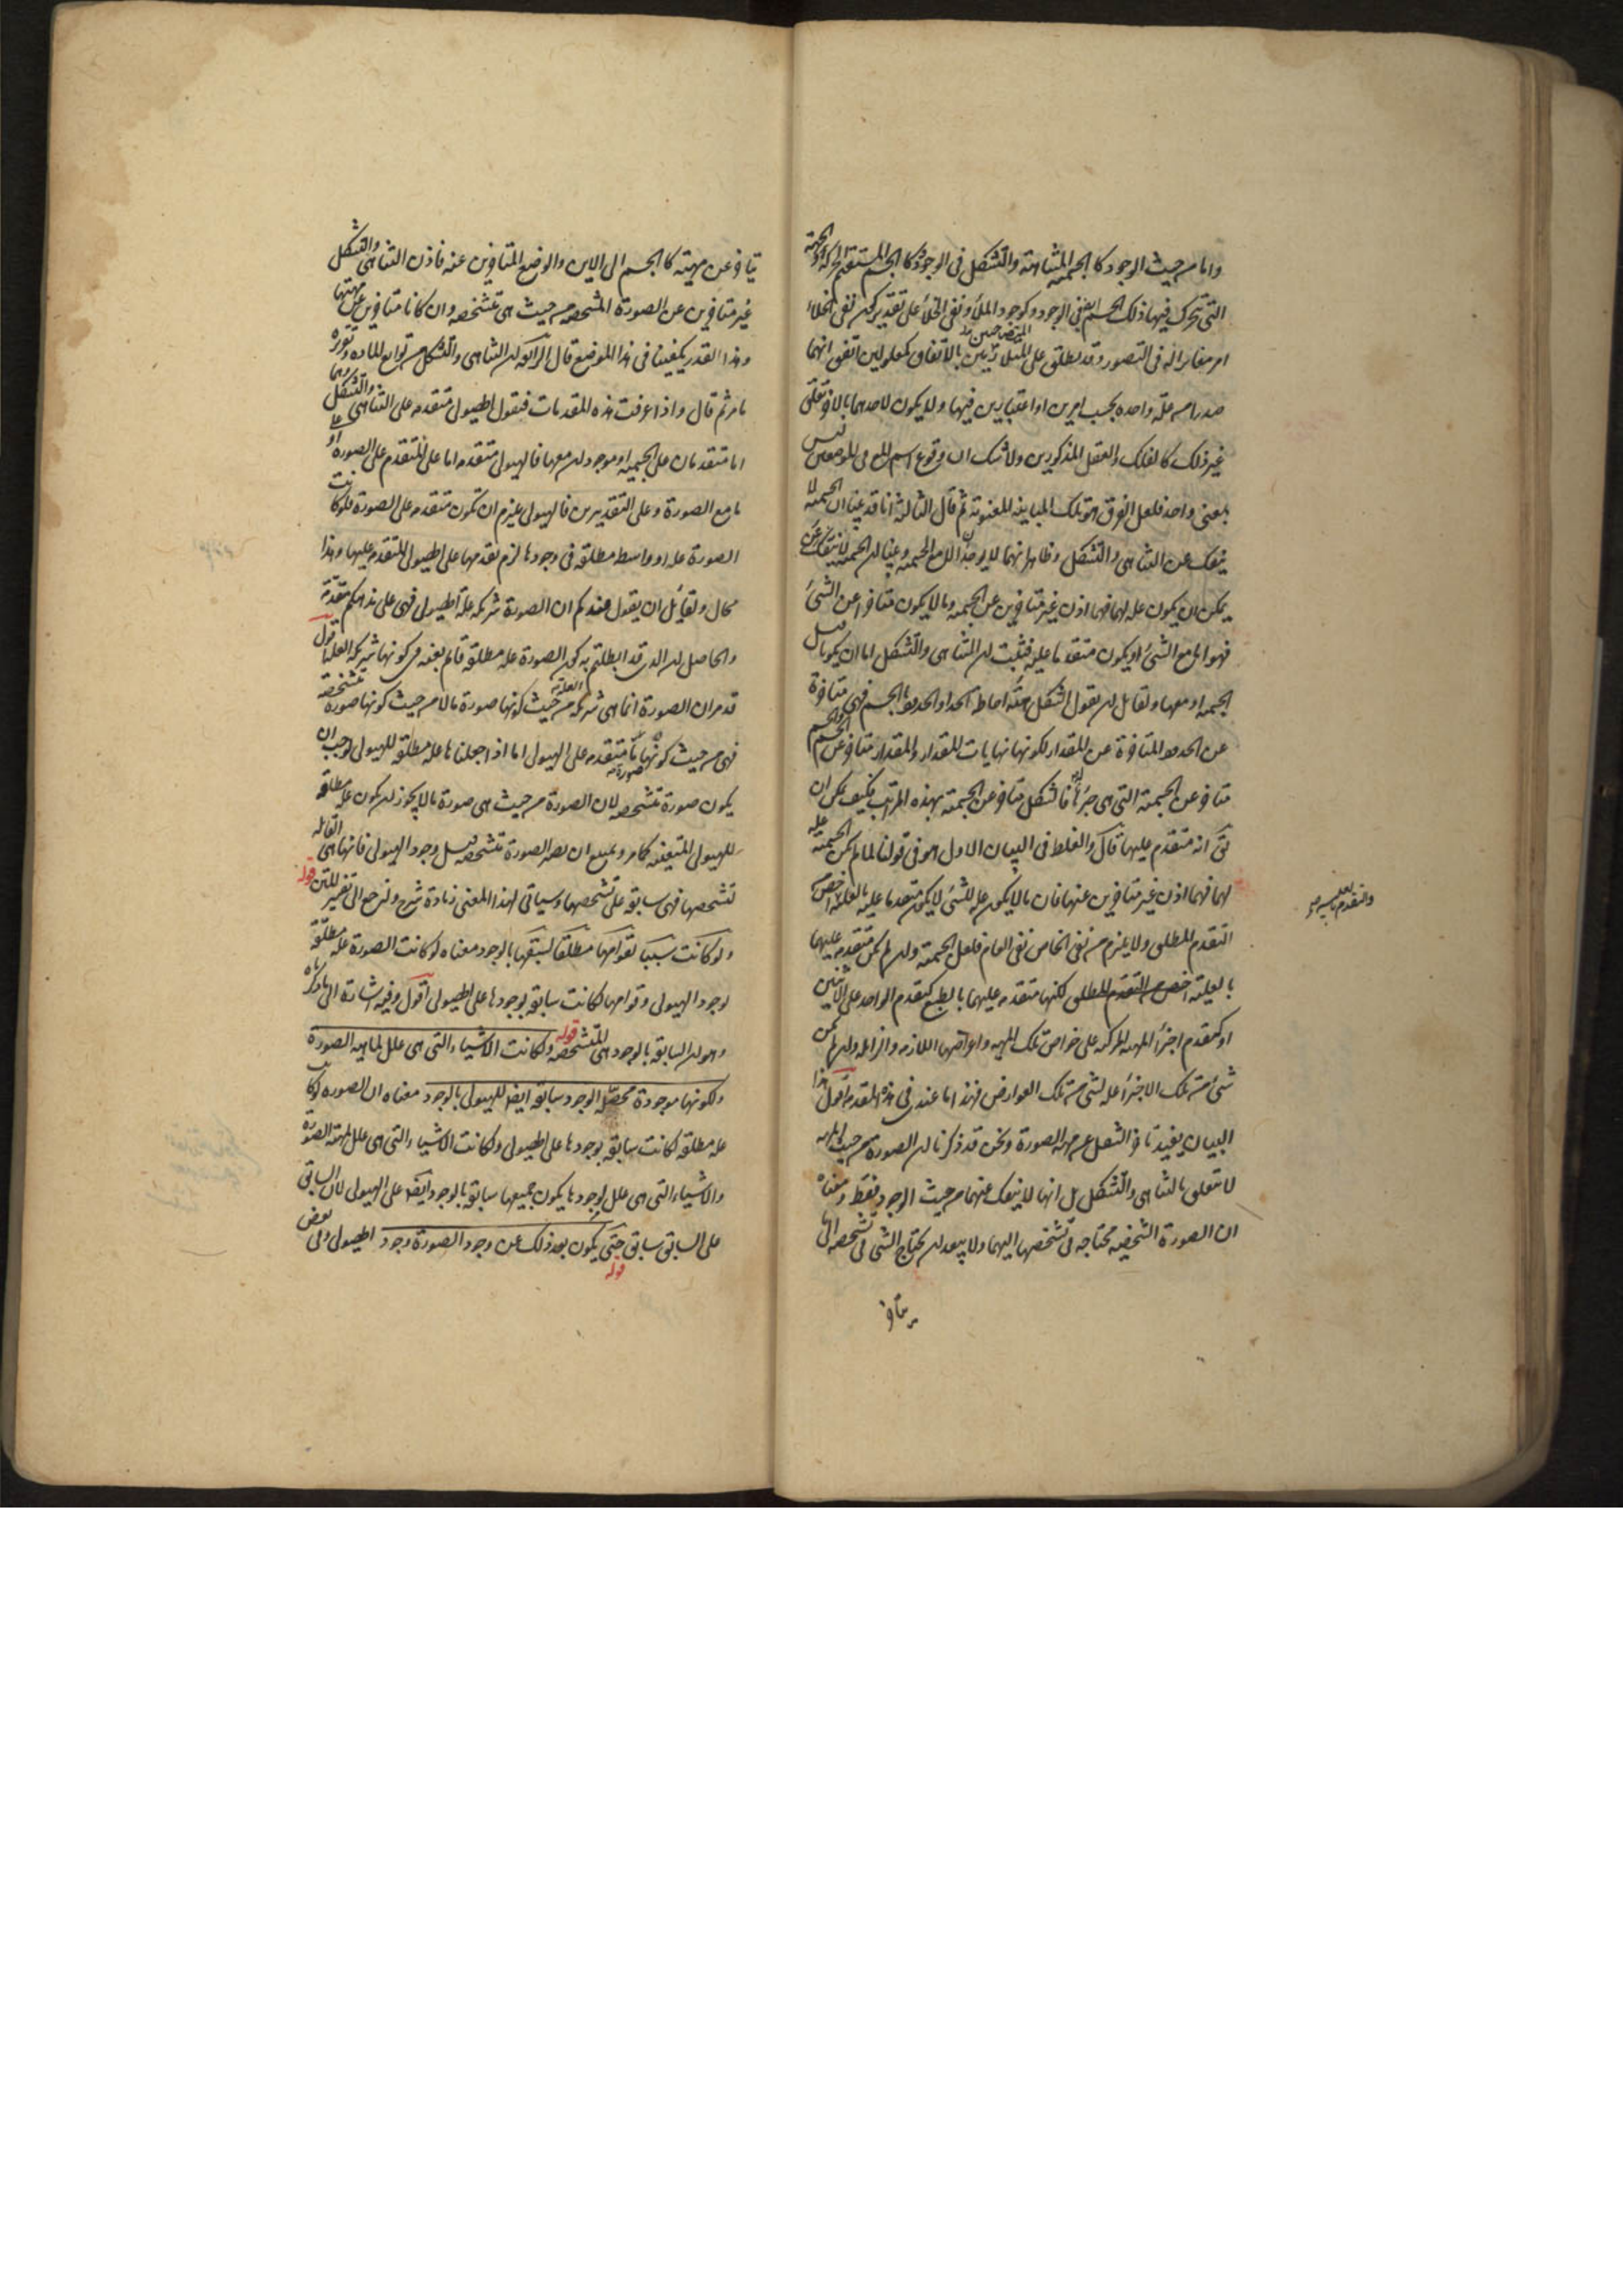 واما من حيث الوجود كالجسمية المتناهية والتشكل فى الوجود وكالجسم المستقيم الحركة والجهة
التى تتحرك فيها ذلك الجسم ايضا فى الوجود وكوجود الملأ ونفى الخلأ على تقدير كون نفى الخلاء
امر مغاير اله فى التصور وقد يطلق على المتلازمين بالاتفاق كمعلولين اتفق انهما
المتصاحبين
صدرا من علة واحدة بحسب امرين او اعتبارين فيها ولا يكون لاحدهما بالاخر تعلق
غير ذلك كالفلك والعقل المذكورين ولا شك ان وقوع اسم المع فى الموضعين ليس
بمعنى واحد فلعل الفرق هو تلك المباينة المعنوية ثم قال الثالثة انا قد بينا ان الجسمية لا
ينفك عن التناهى والتشكل وظاهر انهما لا يوجدان الا مع الجسمية وبينا ان الجسمية لا ينفك عن
يمكن ان يكون علة لهما فهما اذن غير متاخرين عن الجسمية وما لا يكون متاخرا عن الشئ
فهو اما مع الشئ او يكون متقدما عليه فثبت ان التناهى والتشكل اما ان يكونا قبل
الجسمية او معها ولقائل ان يقول الشكل هيئة احاطة الحد او الحدود بالجسم فهى متاخرة
عن الحدود المتاخرة عن المقدار لكونها نهايات للمقدار والمقدار متاخر عن الجسم والجسم
متاخر عن الجسمية التى هى جزؤه فالشكل متاخر عن الجسمية بهذه المراتب فكيف يمكن ان
يقال انه متقدم عليها قال والغلط فى البيان الاول هو فى قولنا لما لم يكن الجسمية علة
لهما فهما اذن غير متاخرين عنها فان ما لا يكون علة للشئ لا يكون متقدما عليه بالعلية اخص من
والتقدم بالعلية
التقدم المطلق ولا يلزم من نفى الخاص نفى العام فلعل الجسمية وان لم يكن متقدمة عليهما
بالعلية اخص من التقدم المطلق لكنها متقدمة عليهما بالطبع كتقدم الواحد على الاثنين
او كتقدم اجزأ المهية المركبة على خواص تلك المهية واعراضها اللازمة والزايلة وان لم يكن
شئ من تلك الاجزأ علة لشئ من تلك العوارض فهذا ما عندى فى هذه المقدمة اقول هذا
البيان يفيد تاخر التشكل عن مهية الصورة ونحن قد ذكرنا ان الصورة من حيث المهية
لا تتعلق بالتناهى والتشكل بل انها لا ينفك عنهما من حيث الوجود فقط ومعناه
ان الصورة الشخصية محتاجة فى تشخصها اليهما ولا يبعد ان يحتاج الشئ فى تشخصه الى ما
يتاخر
يتاخر عن مهيته كالجسم الى الاين والوضع المتاخرين عنه فاذن التناهى والتشكل
غير متاخرين عن الصورة المشخصة من حيث هى متشخصة وان كانا متاخرين عن مهيتها
وهذا القدر يكفينا فى هذا الموضع قال الرابعة ان التناهى والتشكل من توابع المادة وتقريره
ما مر ثم قال واذا عرفت هذه المقدمات فنقول الهيولى متقدمة على التناهى والتشكل وهما
اما متقدمان على الجسمية او موجودان معها فالهيولى متقدمة اما على المتقدم على الصورة او على
ما مع الصورة وعلى التقديرين فالهيولى يلزم ان تكون متقدمة على الصورة فلو كانت
الصورة علة او واسطة مطلقة فى وجودها لزم تقدمها على الهيولى المتقدمة عليها وهذا
محال ولقائل ان يقول عندكم ان الصورة شريكة علة الهيولى فهى على مذهبكم متقدمة
والحاصل ان الذى قد ابطلتم به كون الصورة علة مطلقة قائم بعينه فى كونها شريكة العلة اقول
قد مر ان الصورة انما هى شريكة العلة من حيث كونها صورة ما لا من حيث كونها صورة متشخصة
فهى من حيث كونها صورة ما متقدمة على الهيولى اما اذا جعلناها علة مطلقة للهيولى وجب ان
يكون صورة متشخصة لان الصورة من حيث هى صورة ما لا يجوز ان يكون علة مطلقة
للهيولى المتعينة كما مر وممتنع ان تصير الصورة متشخصة قبل وجود الهيولى فانها هى القابلة
لتشخصها فهى سابقة على تشخصها وسياتى لهذا المعنى زيادة شرح ولنرجع الى تفسير المتن قوله
ولو كانت سببا لقوامها مطلقا لسبقتها بالوجود معناه لو كانت الصورة علة مطلقة
لوجود الهيولى وقوامها لكانت سابقة بوجودها على الهيولى اقول وفيه اشارة الى ما ذكرناه
وهو ان السابقة بالوجود هى المتشخصة قوله ولكانت الاشياء التى هى علل لماهية الصورة
ولكونها موجودة محصلة الوجود سابقة ايضا للهيولى بالوجود معناه ان الصورة لو كانت
علة مطلقة لكانت سابقة بوجودها على الهيولى ولكانت الاشياء التى هى علل لمهية الصورة
والاشياء التى هى علل لوجودها يكون جميعها سابقة بالوجود ايضا على الهيولى لان السابق
على السابق سابق قوله حتى يكون بعد ذلك عن وجود الصورة وجود الهيولى وفى بعض